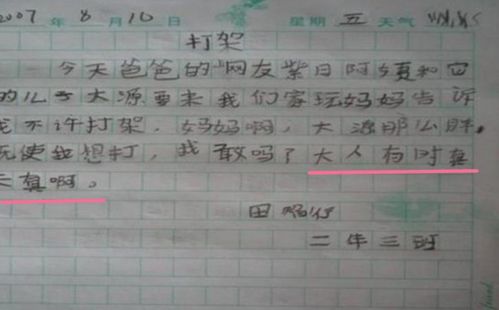 2007年8月10日 星期五 天气
打架
今天爸爸的"网友紫日阿姨和它
的儿子大源要来我们家玩妈妈告诉
我不许打架,妈妈啊,大源那么胖,
既使我想打,我敢吗?大人有时真
天真啊。
田
二年三班